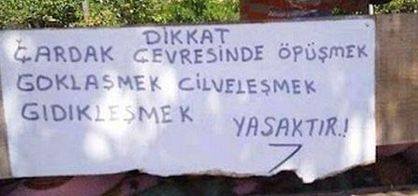 DİKKAT
ÇARDAK ÇEVRESİNDE ÖPÜŞMEK
GOKLAŞMEK CİLVELEŞMEK
GIDIKLEŞMEK YASAKTIR.!